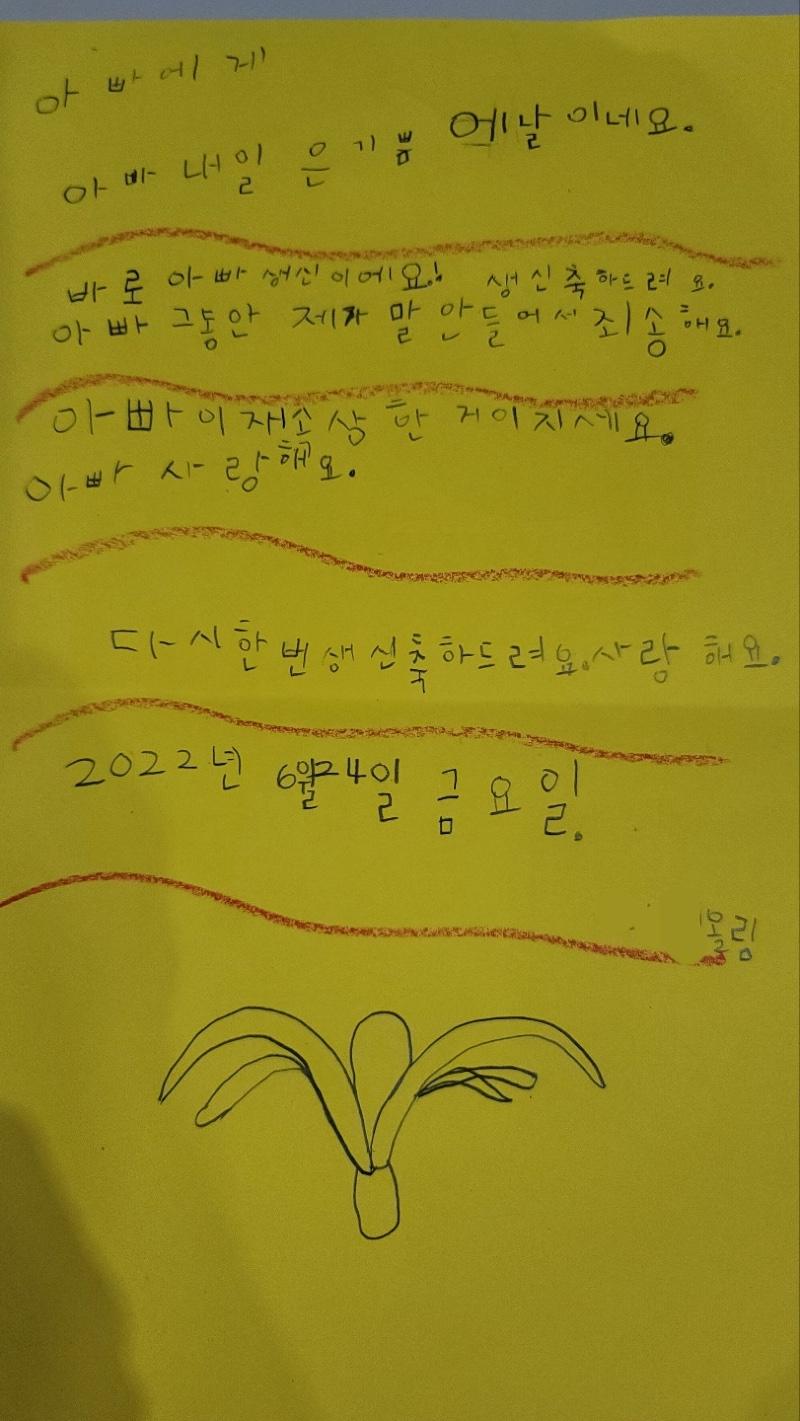 아빠에게
아빠 내일은 기쁨에날이네요.
바로 아빠 생신이에요! 생신축하드려요.
아빠 그동안 제가 말 안들어서 죄송해요.
아빠 이 재소상한 거이지세요.
아빠 사랑해요.
다시한번생신축하드려요.사랑해요.
2022년 6월24일 금요일.
올림